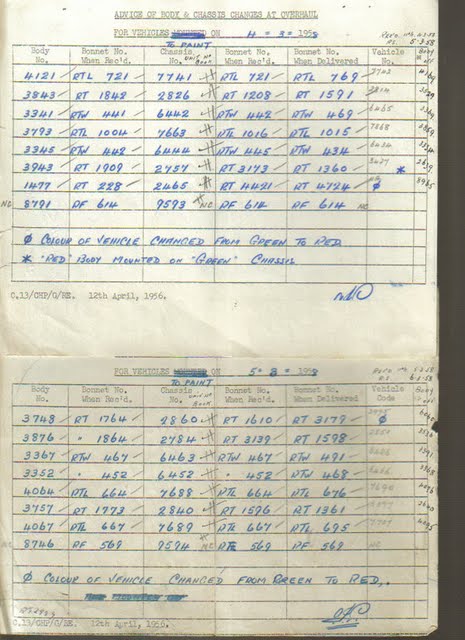 ADVICE OF BODY & CHASSIS CHANGES AT OVERHAUL
FOR VEHICLES ON 4 = 3 = 1958
TO PAINT
5-3-58
Body No. Bonnet No. When Rec'd. Chassis Unit No Book Bonnet No. When Rec'd. Bonnet No. When Delivered Vehicle No. Body
4121 RTL 721 7741 RTL 721 RTL 769
3843 RT 1842 2826 RT 1208 RT 1591
3341 RTW 441 6442 RTW 442 RTW 469
3793 RTL 1004 7663 RTL 1016 RTL 1015
3345 RTW 442 6444 RTW 445 RTW 434
3943 RT 1909 2757 RT 3173 RT 1360 *
1477 RT 228 2465 RT 4421 RT 4724 Ø
NC 8791 RF 614 9593 NC RF 614 RF 614 NC
Ø COLOUR OF VEHICLE CHANGED FROM GREEN TO RED
* "RED" BODY MOUNTED ON "GREEN" CHASSIS
C.13/CHP/G/BE. 12th April, 1956.
FOR VEHICLES ON 5 = 3 = 1958
TO PAINT
Body No. Bonnet No. When Rec'd. Chassis Unit No Book Bonnet No. When Rec'd. Bonnet No. When Delivered Vehicle Code Body
3748 RT 1764 2860 RT 1610 RT 3179 Ø
3876 " 1864 2784 RT 3139 RT 1598
3367 RTW 467 6463 RTW 467 RTW 491
3352 " 452 6452 " 452 RTW 468
4064 RTL 664 7688 RTL 664 RTL 676
3757 RT 1773 2840 RT 1596 RT 1361
4067 RTL 667 7689 RTL 667 RTL 695
NC 8746 RF 569 9594 NC 569 RF 569 NC
Ø COLOUR OF VEHICLE CHANGED FROM GREEN TO RED.
C.13/CHP/G/BE. 12th April, 1956.